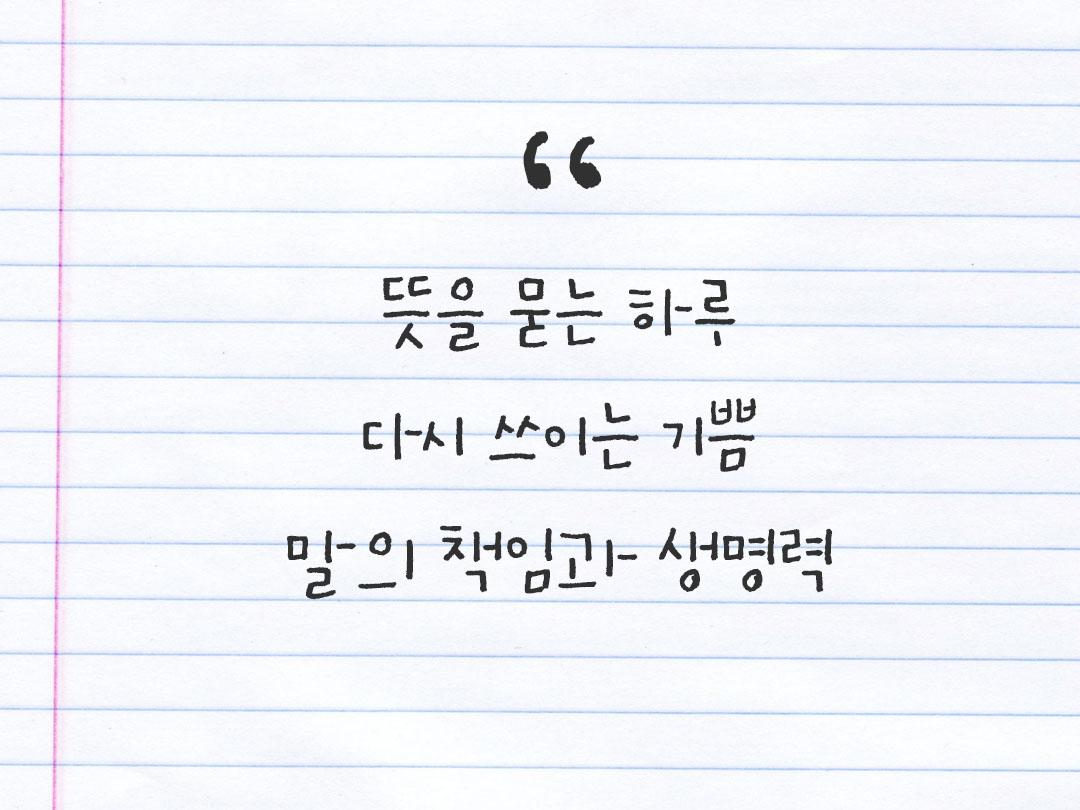 “
뜻을 묻는 하루
다시 쓰이는 기쁨
말의 책임과 생명력